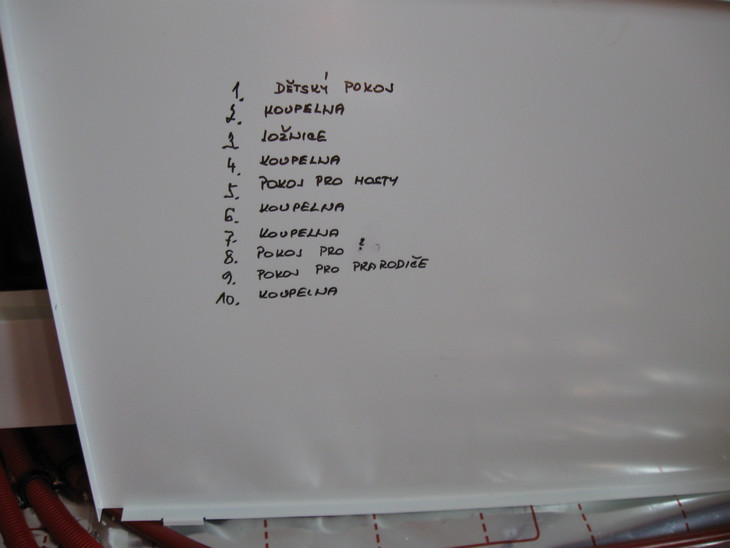 1. DĚTSKÝ POKOJ
2. KOUPELNA
3 LOŽNICE
4. KOUPELNA
5. POKOJ PRO HOSTY
6. KOUPELNA
7. KOUPELNA
8. POKOJ PRO ?
9. POKOJ PRO PRARODIČE
10. KOUPELNA